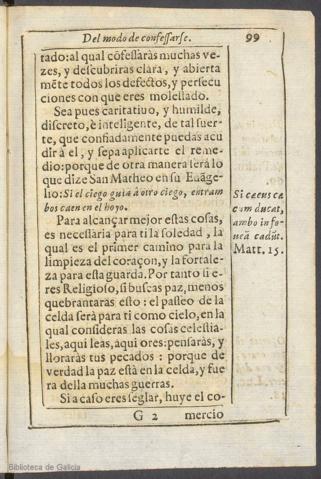 Del modo de confeſſarse. 99
tado: al qual cõfeſſaràs muchas ve-
zes, y deſcubriras clara, y abierta
mẽte todos los defectos, y perſecu
ciones con que eres moleſtado.
Sea pues caritatiuo, y humilde,
diſcreto, è inteligente, de tal ſuer-
te, que confiadamente puedas acu
dir à el, y ſepa aplicarte el reme-
dio: porque de otra manera ſerà lo
que dize San Matheo en su Euãge-
lio: Si el ciego guia à otro ciego, entram
bos caen en el hoyo.
Si cæcus cæ
cum ducat,
ambo in fo-
ueã cadũt.
Matt. 15.
Para alcançar mejor eſtas coſas,
es neceſſaria para ti la ſoledad, la
qual es el primer camino para la
limpieza del coraçon, y la fortale-
za para eſta guarda. Por tanto ſi e-
res Religioſo, ſi buſcas paz, menos
quebrantaras eſto: el paſſeo de la
celda ſerà para ti como cielo, en la
qual conſideras las coſas celeſtia-
les, aqui leas, aqui ores: penſaràs, y
lloraràs tus pecados: porque de
verdad la paz eſtà en la celda, y fue
ra della muchas guerras.
Si a caſo eres ſeglar, huye el co-
G 2 mercio
Biblioteca de Galicia